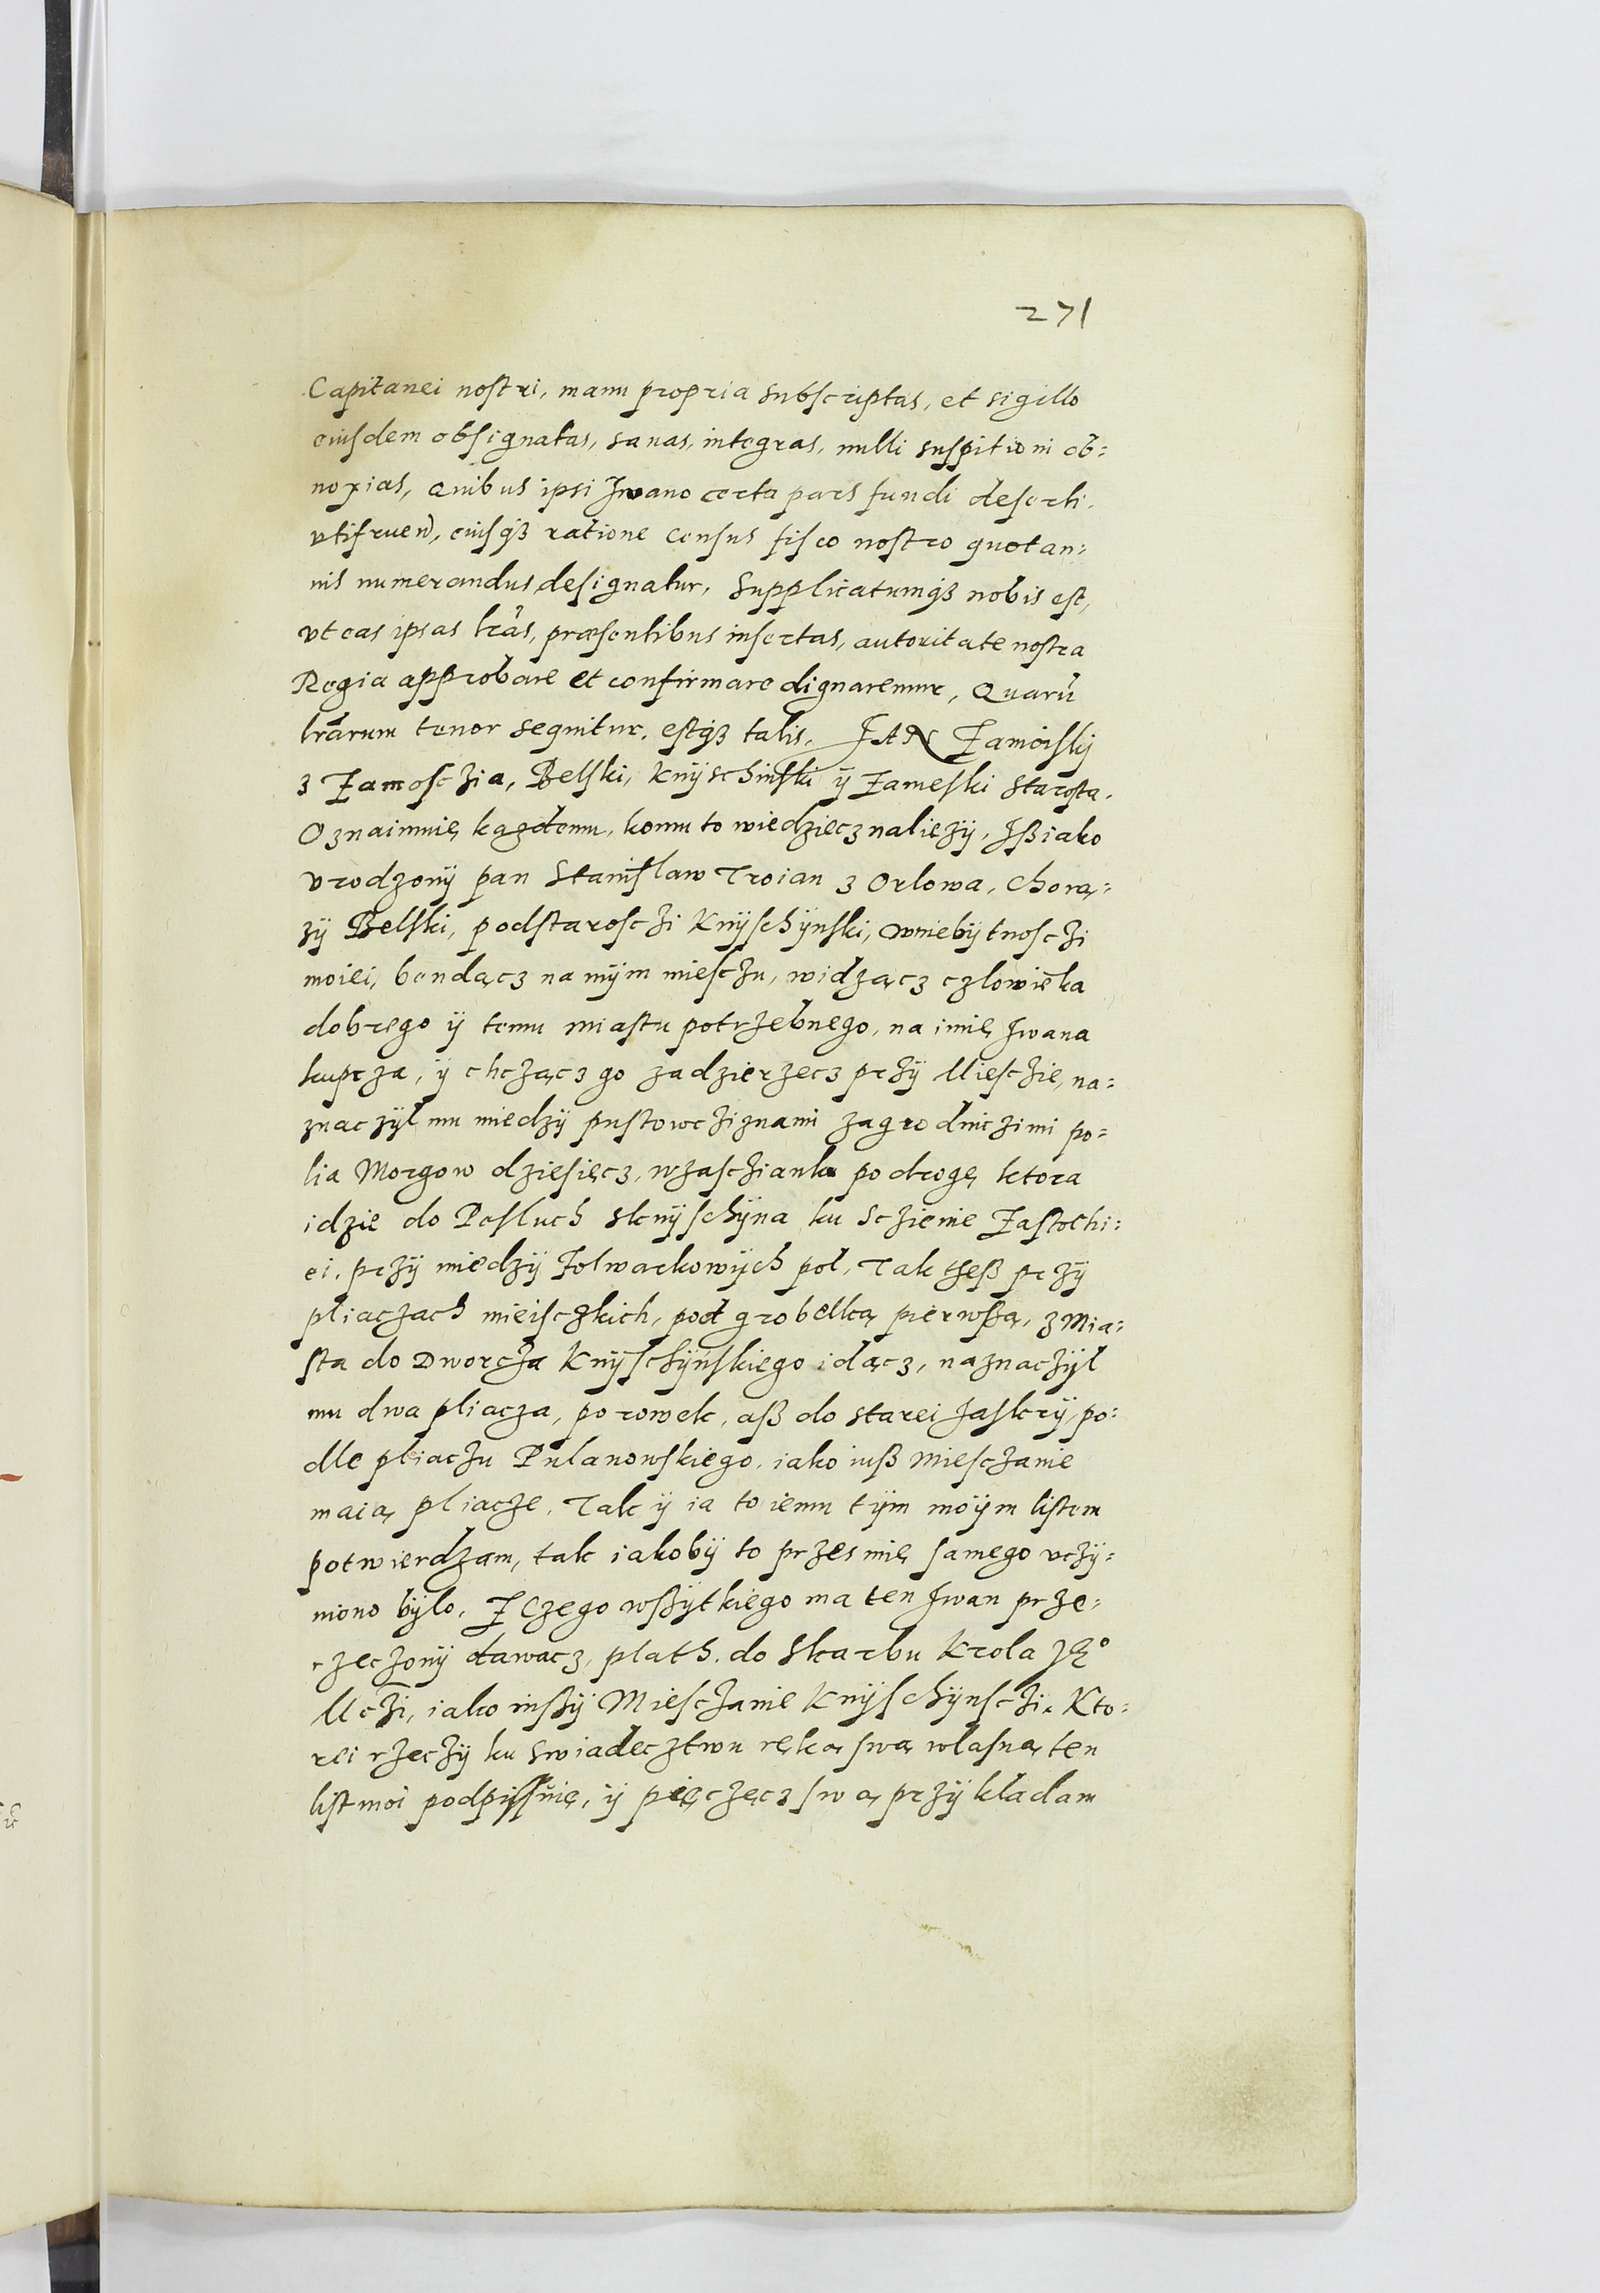 271
Capitanei nostri, manu propria subscriptas, et sigillo
eiusdem obsignatas, sanas, integras, nulli suspitioni ob:
noxias, Quibus ipsi Iwano certa pars fundi deserti,
vtifruen, eiusqȝ ratione census fisco nostro quotan:
nis numerandus designatur, Supplicatumqȝ nobis est,
vt eas ipsas lrãs, præsentibus insertas, autoritate nostra
Regia approbare et confirmare dignaremur, Quarũ
lrãrum tenor sequitur, estqȝ talis, JAN Zamoiskÿ
z Zamosczia, Belski, Knÿschinski ÿ Zameski Starosta.
Oznaimuię kazdemu, komu to wiedziecz naliezÿ, Jß iako
vrodzonÿ pan Stanislaw Troian z Orlowa, Chorą:
zÿ Belski, podstaroschi Knÿschÿnski, wniebÿtnosczi
moiei, bendącz na mÿm miesczu, widzącz czlowieka
dobrego ÿ temu miastu potrzebnego, na imię Iwana
kupcza, ÿ chczącz go zadzierzecz przÿ Miesczie, na:
znaczÿl mu miedzÿ pustowcziznami zagrodniczimi po:
lia Morgow dziesięcz, wzasczianku po drogę ktora
idzie do Posluch sknÿschÿna ku Sczienie Zastochi:
ei, przÿ miedzÿ Folwarkowÿch pol, Tak theß przÿ
pliaczach mieisczkich, pod grobelką pierwßą, z Mia:
sta do Dworcza Knÿschÿńskiego idącz, naznaczÿl
mu dwa pliacza, po rowek, aß do starei Jaskrÿ, po:
dle pliaczu Pulanowskiego, iako iuß Miesczanie
maią pliacze, Tak ÿ ia to iemu tÿm moÿm listem
potwierdzam, tak iakobÿ to przes mię samego vczÿ:
niono bÿlo, Z Czego wßÿtkiego ma ten Iwan prze:
rzeczonÿ dawacz, plath, do Skarbu Krola JEº
Mczi, iako inßÿ Miesczanie Knÿschÿnsczi. Kto:
rei rzeczÿ ku swiadecztwu ręką swą wlasną ten
list moi podpissuię, ÿ pięczęcz swą przÿkladam